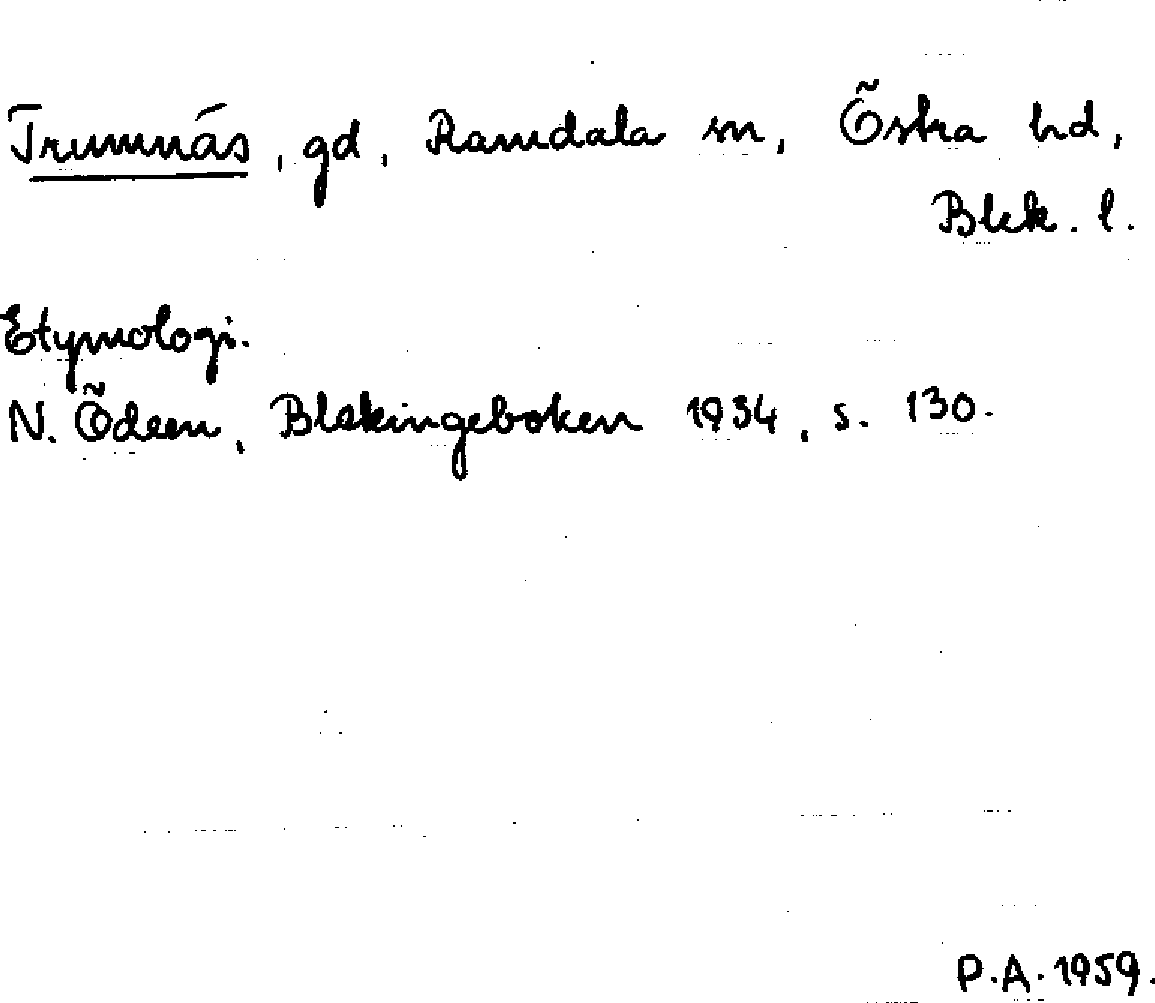 Trumnäs, gd, Ramdala sn, Östra hd,
Blek. l.
Etymologi.
N. Ödeen, Blekingeboken 1934, s. 130.
P.A. 1959.